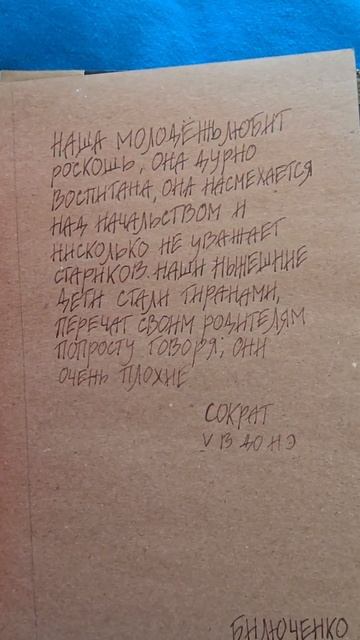 НАША МОЛОДЁЖЬ ЛЮБИТ
РОСКОШЬ, ОНА ДУРНО
ВОСПИТАНА, ОНА НАСМЕХАЕТСЯ
НАД НАЧАЛЬСТВОМ И
НИСКОЛЬКО НЕ УВАЖАЕТ
СТАРИКОВ. НАШИ НЫНЕШНИЕ
ДЕТИ СТАЛИ ТИРАНАМИ,
ПЕРЕЧАТ СВОИМ РОДИТЕЛЯМ
ПОПРОСТУ ГОВОРЯ, ОНИ
ОЧЕНЬ ПЛОХИЕ
СОКРАТ
V В ДО Н Э
БИЛЮЧЕНКО